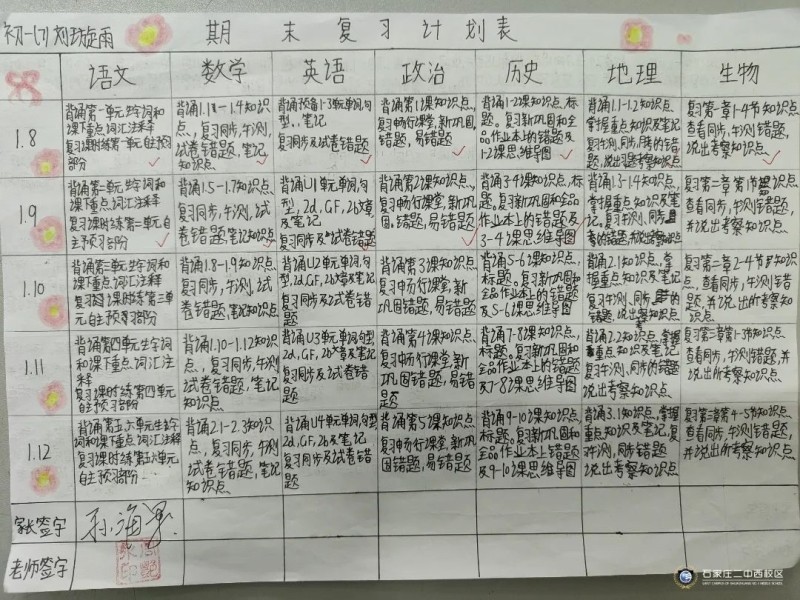 初一(7) 刘璇雨
期末复习计划表
语文 数学 英语 政治 历史 地理 生物
1.8
背诵第一单元生字词和
课下重点词汇注释
复习课时练第一单元自主预习
部分
背诵1.1-1.4知识
点、复习同步,午测,
试卷错题,笔记
知识点
背诵预备1-3单元单词,句
型,笔记
复习同步及试卷错题
背诵第1课知识点,
复习畅行课堂,新巩固
错题,易错题
1-2课知识点,标
题。复习新巩固和全
品作业本上的错题及
1-2课思维导图
背诵1.1-1.2知识点,
掌握重点知识及笔记
复习午测,同步的错
题,说出考察知识点
复习第一章1-4节知识点
查看同步,午测错题,
说出考察知识点
1.9
背诵第二单元生字词和
课下重点词汇注释
复习课时练第二单元
自主预习部分
背诵1.5-1.7知识点,
复习同步,午测,试
卷错题,笔记知识点
背诵U1单元单词,句
型,2d,GF,2b文章
及笔记
复习同步及试卷错题
背诵第2课知识点,
复习畅行课堂,新巩
固,错题,易错题
3-4课知识点,标
题,复习新巩固和全品
作业本上的错题及
3-4课思维导图
背诵1.3-1.4知识点,
掌握重点知识及笔
记。复习午测,同步
的错题,说出考察知识点
复习第二章第1节知识点
查看同步,午测错题,
并说出考察知识点
1.10
背诵第三单元生字词和
课下重点词汇注释
复习课时练第三单
元自主预习部分
背诵1.8-1.9知识点,
复习同步,午测,试
卷错题,笔记知识点
背诵U2单元单词,句型
,2d,GF,2b文章及笔记
复习同步及试卷错
题
背诵第3课知识点,
复习畅行课堂,新
巩固错题,易错题
背诵5-6课知识点,
标题。复习新巩固和
全品作业本上的错题
及5-6课思维导图
背诵2.1知识点,掌
握重点知识及笔记
复习午测,同步的
错题,说出考察知识点
复习第二章2-4节知识点,
查看同步,午测错
题,并说出所考察知识点
1.11
背诵第四单元生字词
和课下重点词汇注
释
复习课时练第四单元
自主预习部分
背诵1.10-1.12知识
点,复习同步,午测
试卷错题,笔记
知识点
背诵U3单元单词句型
2d,GF,2b文章及笔记
复习同步及试卷错题
背诵第4课知识点,
复习畅行课堂,新
巩固错题,易错题
背诵7-8课知识点,
标题。复习新巩固和
全品作业本上的错题
及7-8课思维导图
背诵2.2知识点,掌握
重点知识及笔记
复习午测,同步错题
说出考察知识点
复习第三章第1-3节知识点
查看同步,午测错题,并
说出所考察知识点
1.12
背诵第五、六单元生字
词和课下重点词汇注释
复习课时练第五六单元
自主预习部分
背诵2.1-2.3知识
点,复习同步,午测
试卷错题,笔记
知识点
背诵U4单元单词,句型
2d,GF,2b及笔记
复习同步及试卷错
题
背诵第5课知识点
复习畅行课堂,新巩固
错题,易错题
背诵9-10课知识点,
标题。复习新巩固和
全品作业本上错题
及9-10课思维导图
背诵3.1知识点,掌握
重点知识及笔记,复
习午测,同步错题
说出考察知识点
复习第三章4-5节知识点
查看同步,午测错题,
并说出所考察知识点
家长签字
老师签字
石家庄二中西校区